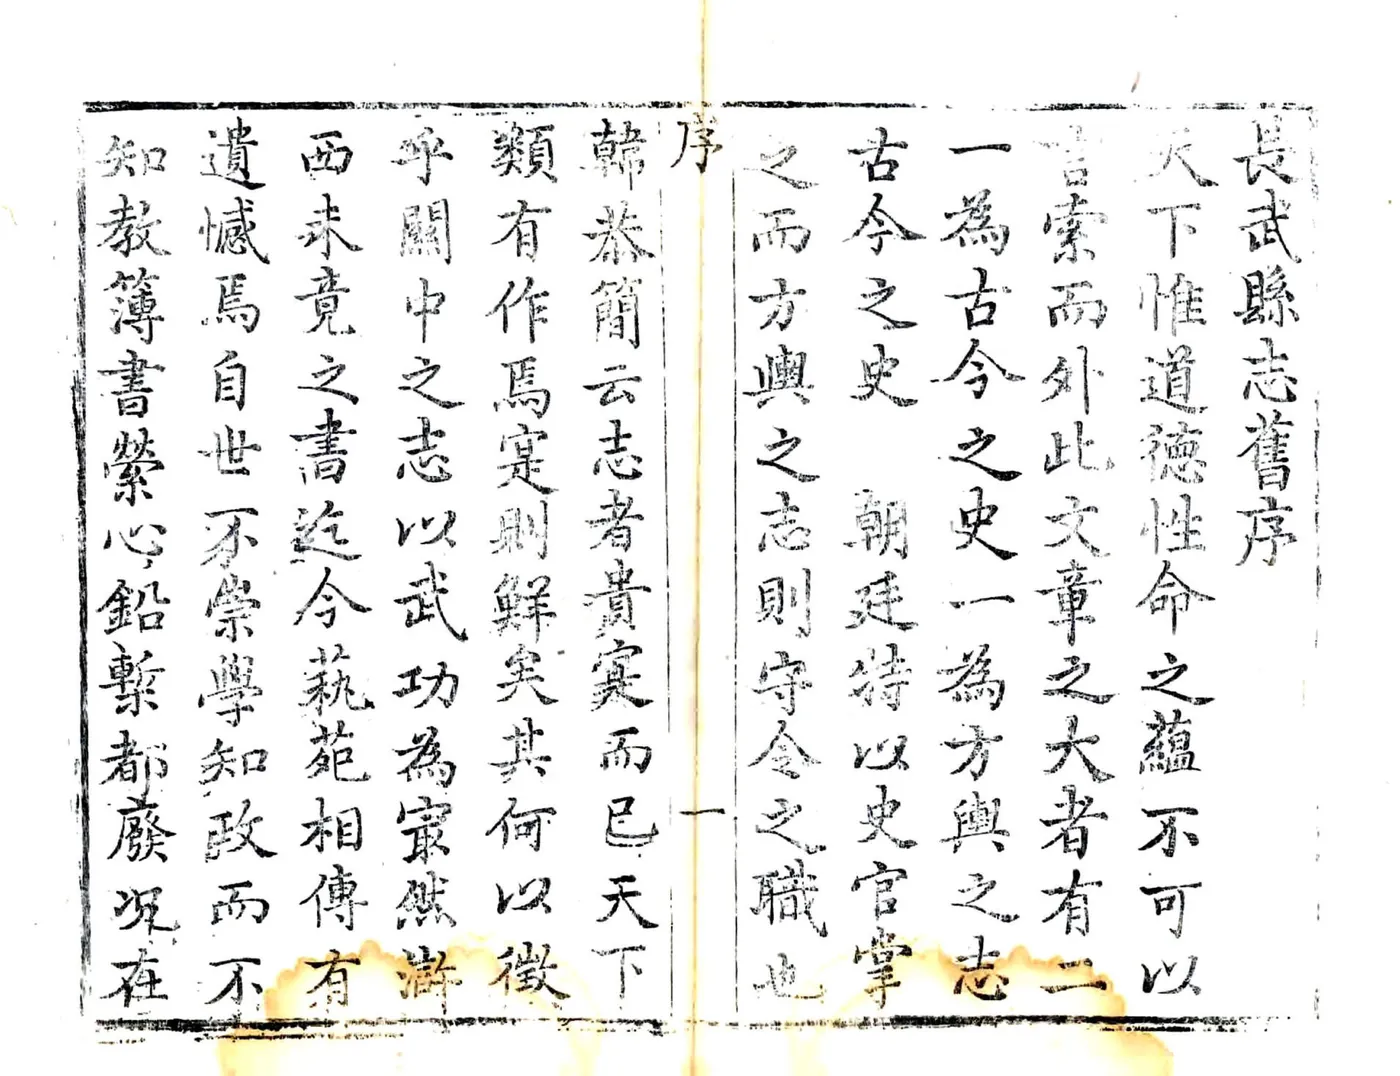 長武縣志舊序
天下惟道德性命之蘊不可以
言索而外此文章之大者有二
一為古今之史一為方輿之志
古今之史　朝廷特以史官掌
之而方輿之志則守令之職也
序
一
韓恭簡云志者貴寔而已天下
類有作焉寔則鮮矣其何以徵
乎關中之志以武功為冣然滸
西未竟之書迄今蓺苑相傳有
遺憾焉自世不崇學知政而不
知教簿書縈心鉛槧都廢况在